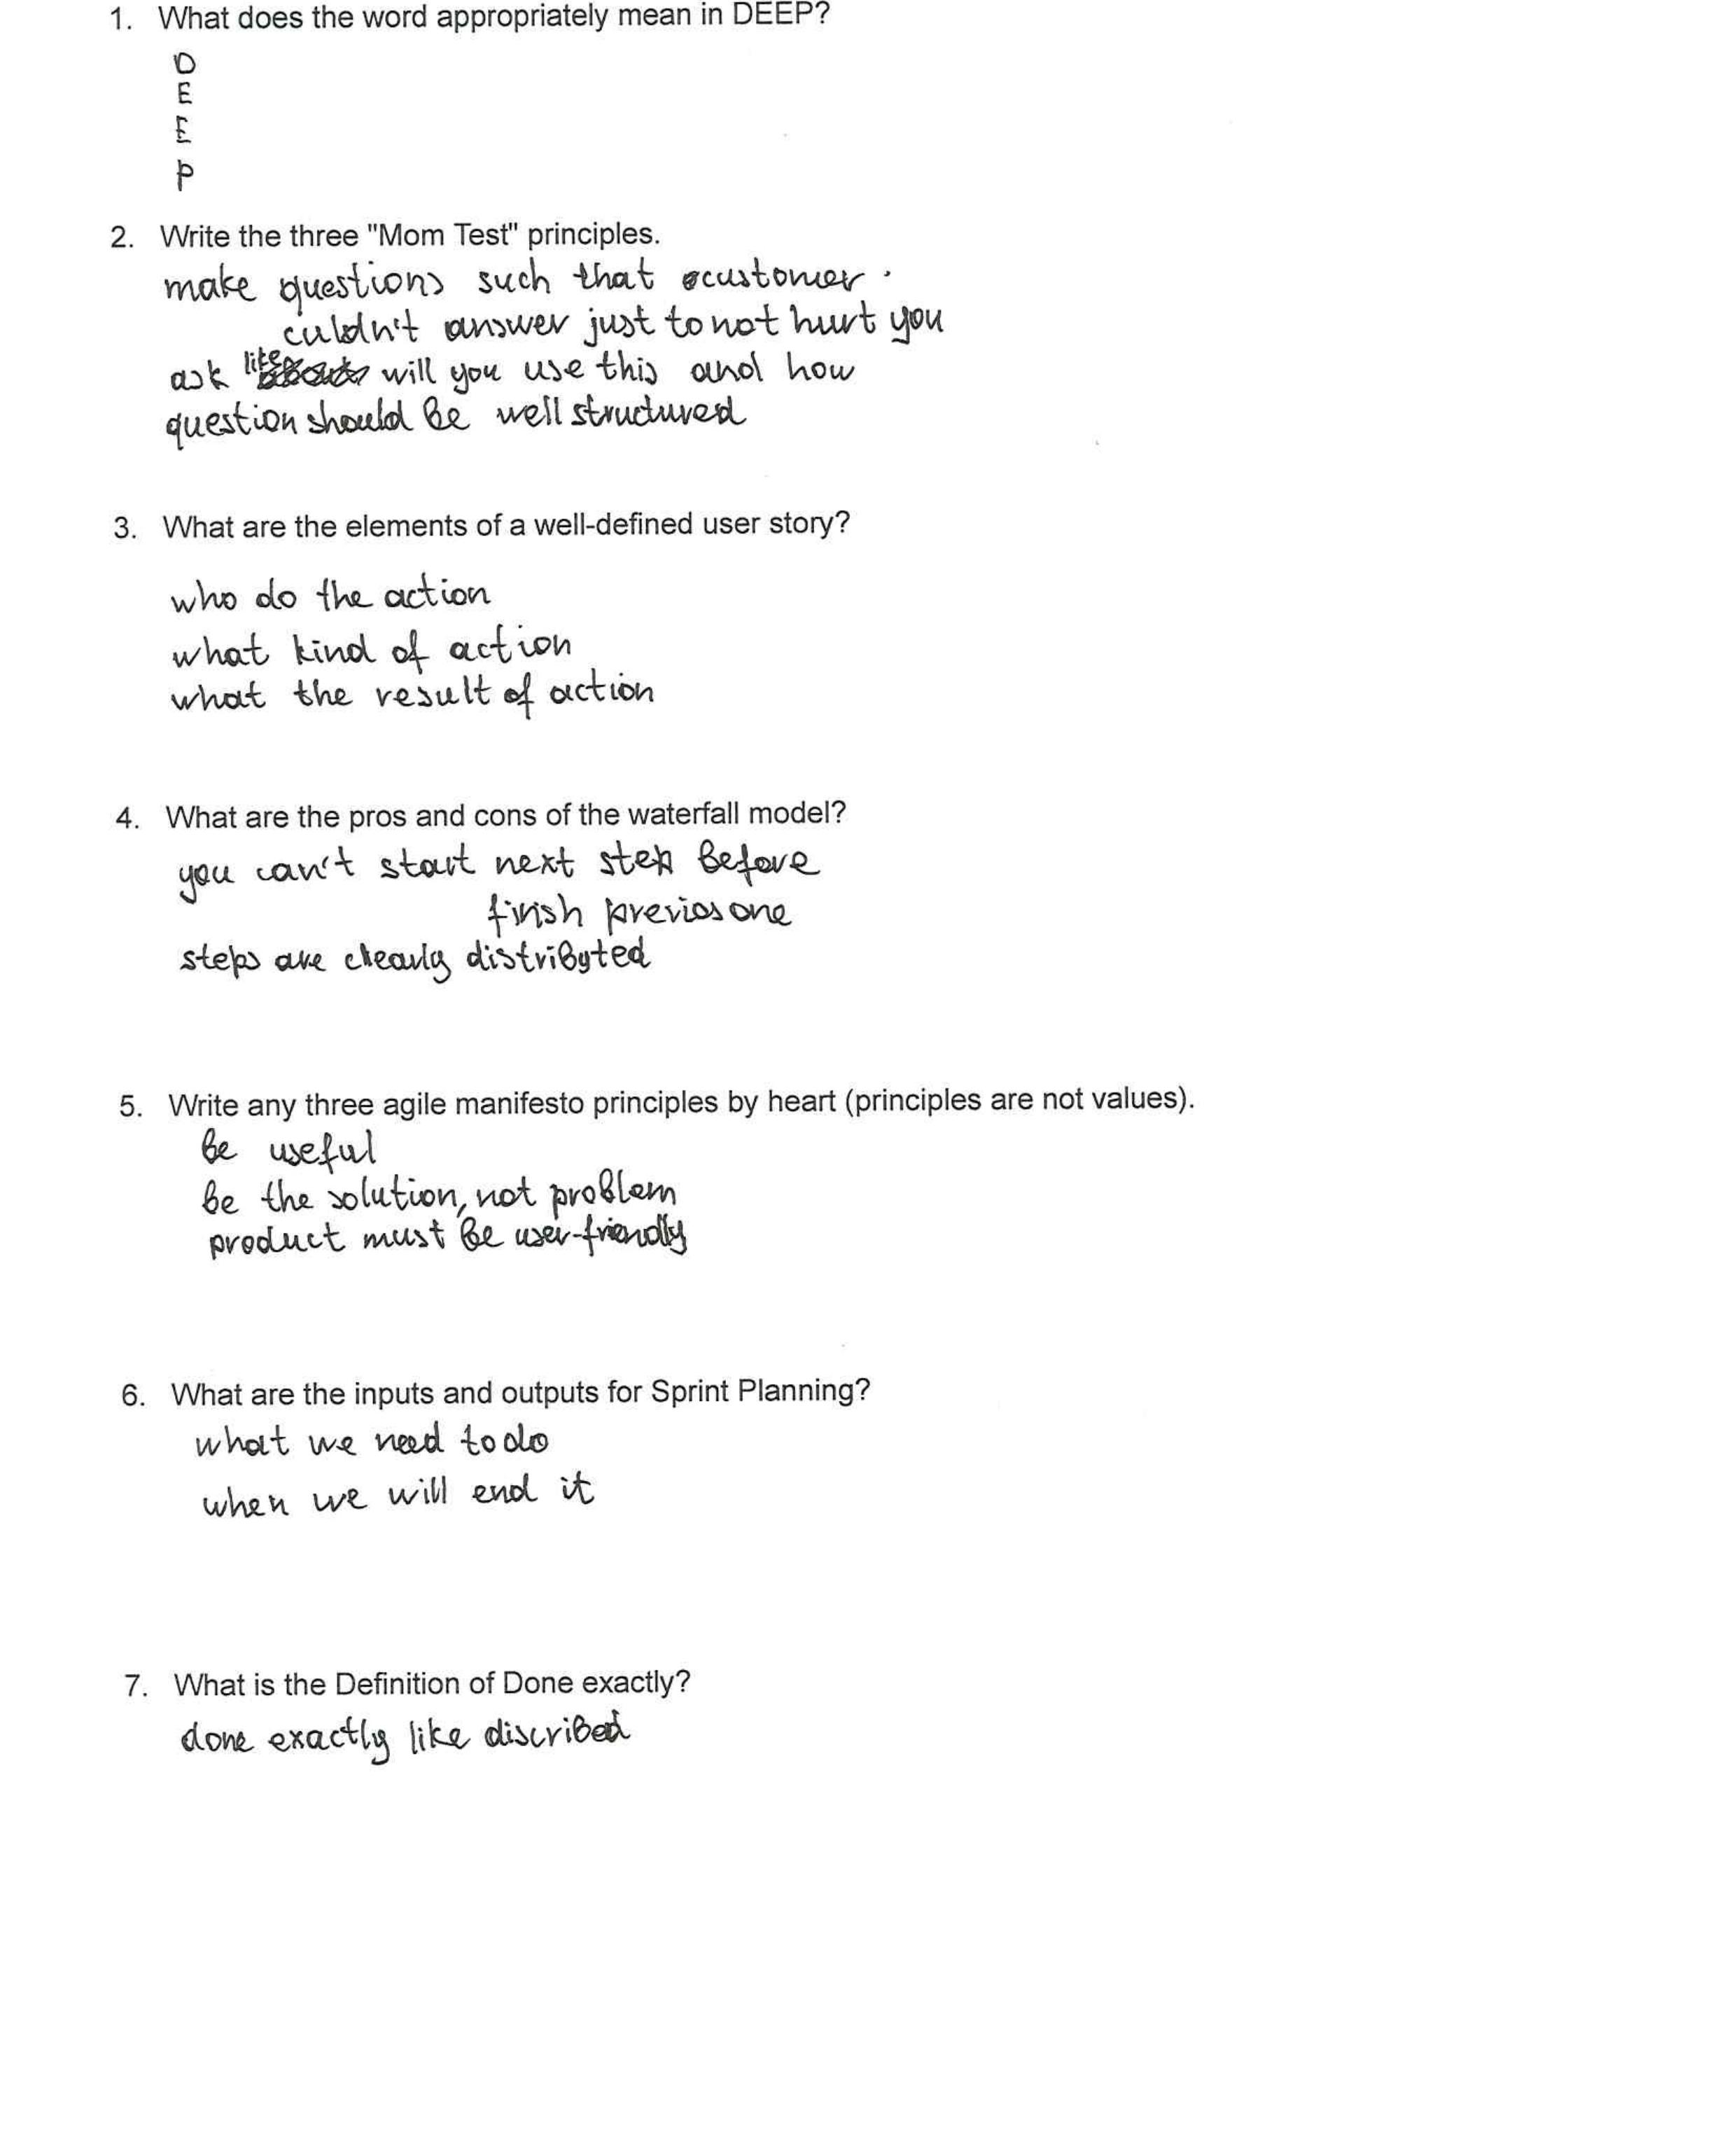 1. What does the word appropriately mean in DEEP?
D
E
E
P
2. Write the three "Mom Test" principles.
make questions such that customer
culdn't answer just to not hurt you
ask like will you use this and how
question should be well structured
3. What are the elements of a well-defined user story?
who do the action
what kind of action
what the result of action
4. What are the pros and cons of the waterfall model?
you can't start next step before
finish previos one
steps are clearly distribyted
5. Write any three agile manifesto principles by heart (principles are not values).
be useful
be the solution, not problem
product must be user-friendly
6. What are the inputs and outputs for Sprint Planning?
what we need to do
when we will end it
7. What is the Definition of Done exactly?
done exactly like discribed